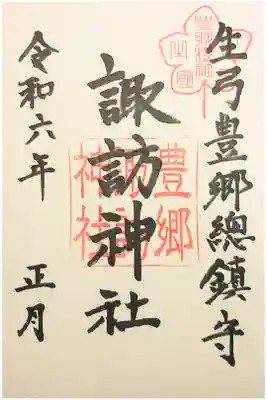 生弓豊郷總鎮守
諏訪神社
豊郷
諏訪
神社
令和六年 正月